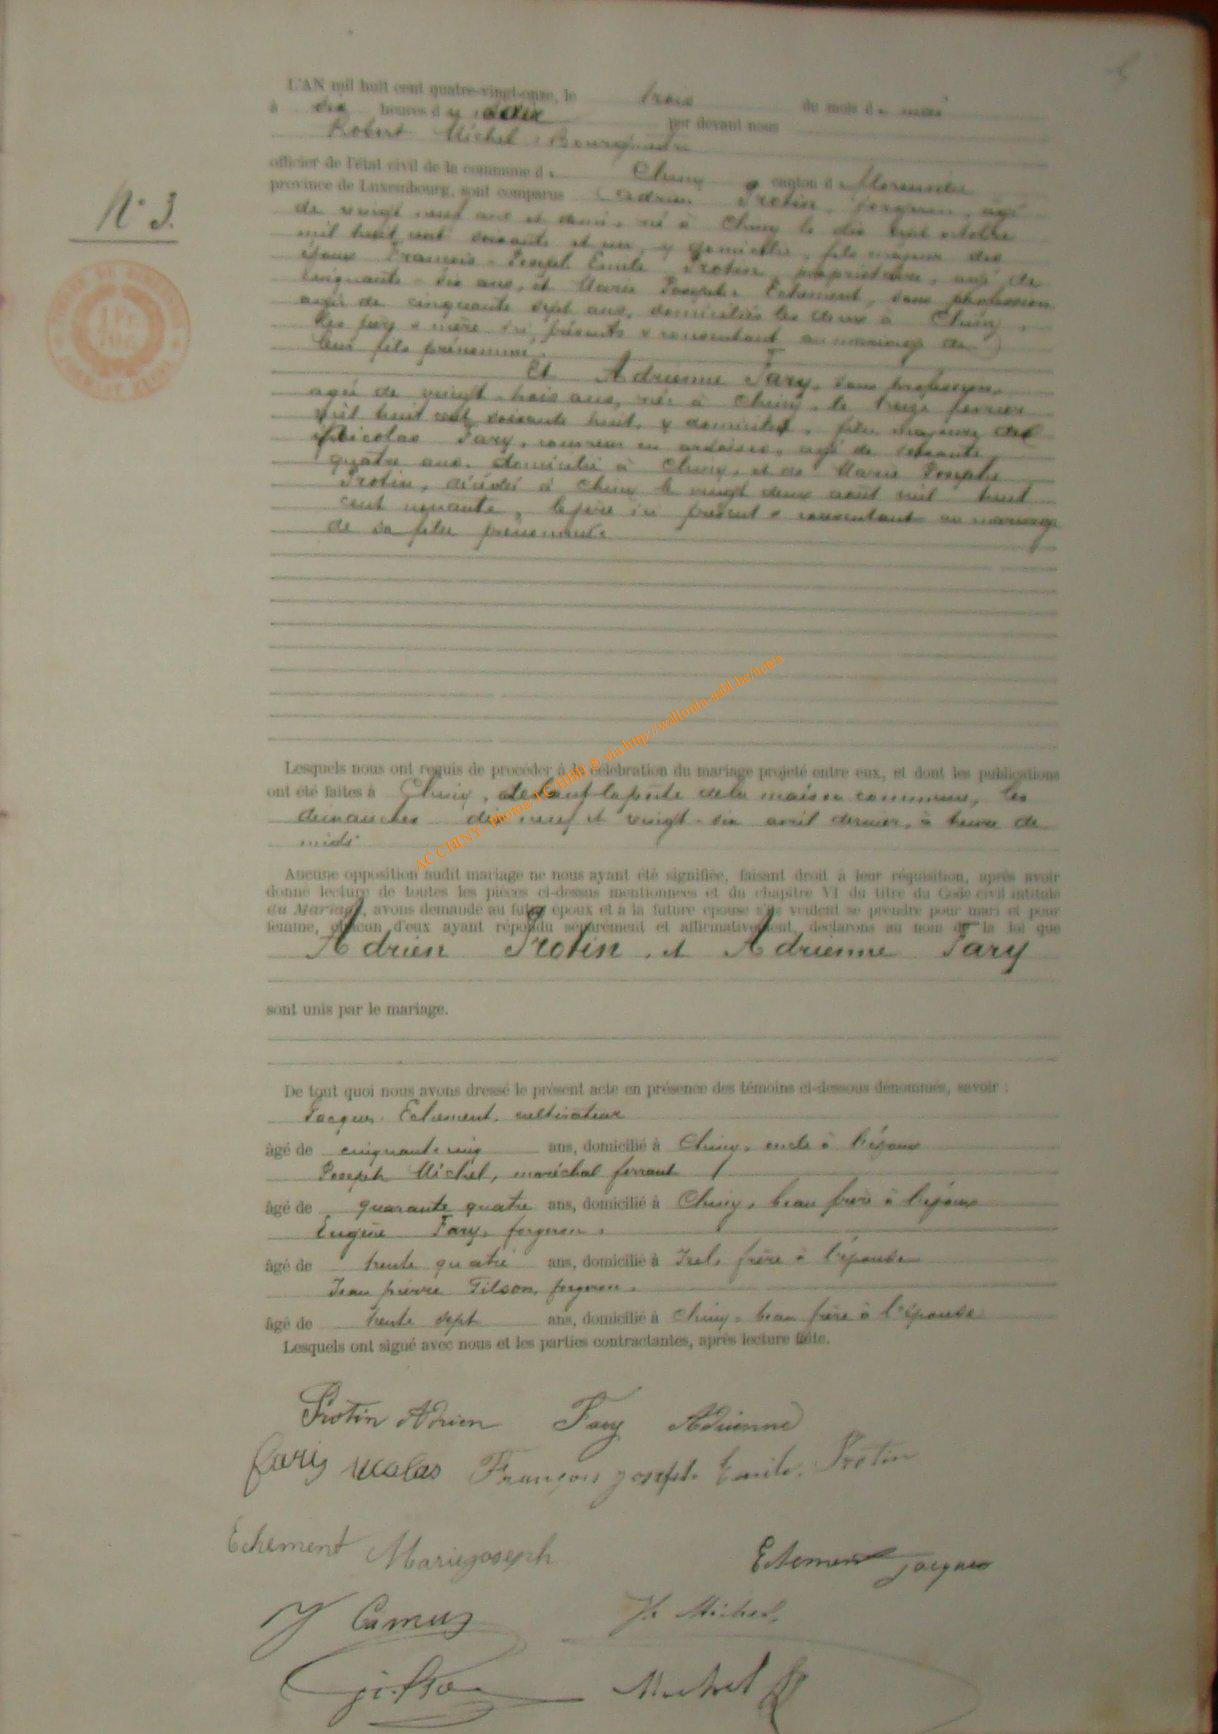 N° 3.
L'AN mil huit cent quatre-vingt-onze, le trois du mois de mai
à six heures d par devant nous
Robert Michel, Bourgmestre
officier de l'état civil de la commune de Chiny canton de
province de Luxembourg, sont comparus Adrien Protin, forgeron, âgé
de vingt neuf ans et demi, né à Chiny le dix sept octobre
mil huit cent soixante et un, y domicilié, fils majeur des
époux François-Joseph Emile Protin, propriétaire, âgé de
cinquante-six ans, et Marie Josephe Echement, sans profession
agée de cinquante sept ans, domiciliés les deux à Chiny,
les père & mère ici présents & consentant au mariage de
leur fils prénommé.
Et Adrienne Fary, sans profession,
agée de vingt-trois ans, née à Chiny, le treize février
mil huit cent soixante huit, y domiciliée, fille majeure de
Nicolas Fary, couvreur en ardoises, agé de soixante
quatre ans, domicilié à Chiny, et de Marie Josephe
Protin, décédée à Chiny le vingt deux août mil huit
cent nonante, le père ici présent & consentant au mariage
de sa fille prénommée.
Lesquels nous ont requis de procéder à la célébration du mariage projeté entre eux, et dont les publications
ont été faites à Chiny, devant la porte de la maison commune, les
dimanches dix neuf et vingt-six avril dernier, à heure de
midi
ACCHINY- photo J CAHBI @ via http://wallonia-asbl.be/news
Aucune opposition audit mariage ne nous ayant été signifiée, faisant droit à leur réquisition, après avoir
donné lecture de toutes les pièces ci-dessus mentionnées et du chapitre VI du titre du Code civil intitulé
du Mariage, avons demandé au futur époux et à la future épouse s'ils veulent se prendre pour mari et pour
femme, chacun d'eux ayant répondu séparément et affirmativement, déclarons au nom de la loi que
Adrien Protin, et Adrienne Fary
sont unis par le mariage.
De tout quoi nous avons dressé le présent acte en présence des témoins ci-dessous dénommés, savoir :
Jacques Echement, cultivateur
âgé de cinquante cinq ans, domicilié à Chiny, oncle à l'époux
Joseph Michel, maréchal ferrant
âgé de quarante quatre ans, domicilié à Chiny, beau frère à l'époux
Eugène Fary, forgeron,
âgé de trente quatre ans, domicilié à Izel, frère à l'épouse
Jean pierre Gilson, forgeron,
âgé de trente sept ans, domicilié à Chiny, beau frère à l'épouse
Lesquels ont signé avec nous et les parties contractantes, après lecture faite.
Protin Adrien Fary Adrienne
fary Nicolas François joseph Emile Protin
Echement Mariejoseph Echement jacques
Jh Michel
gilson Michel R